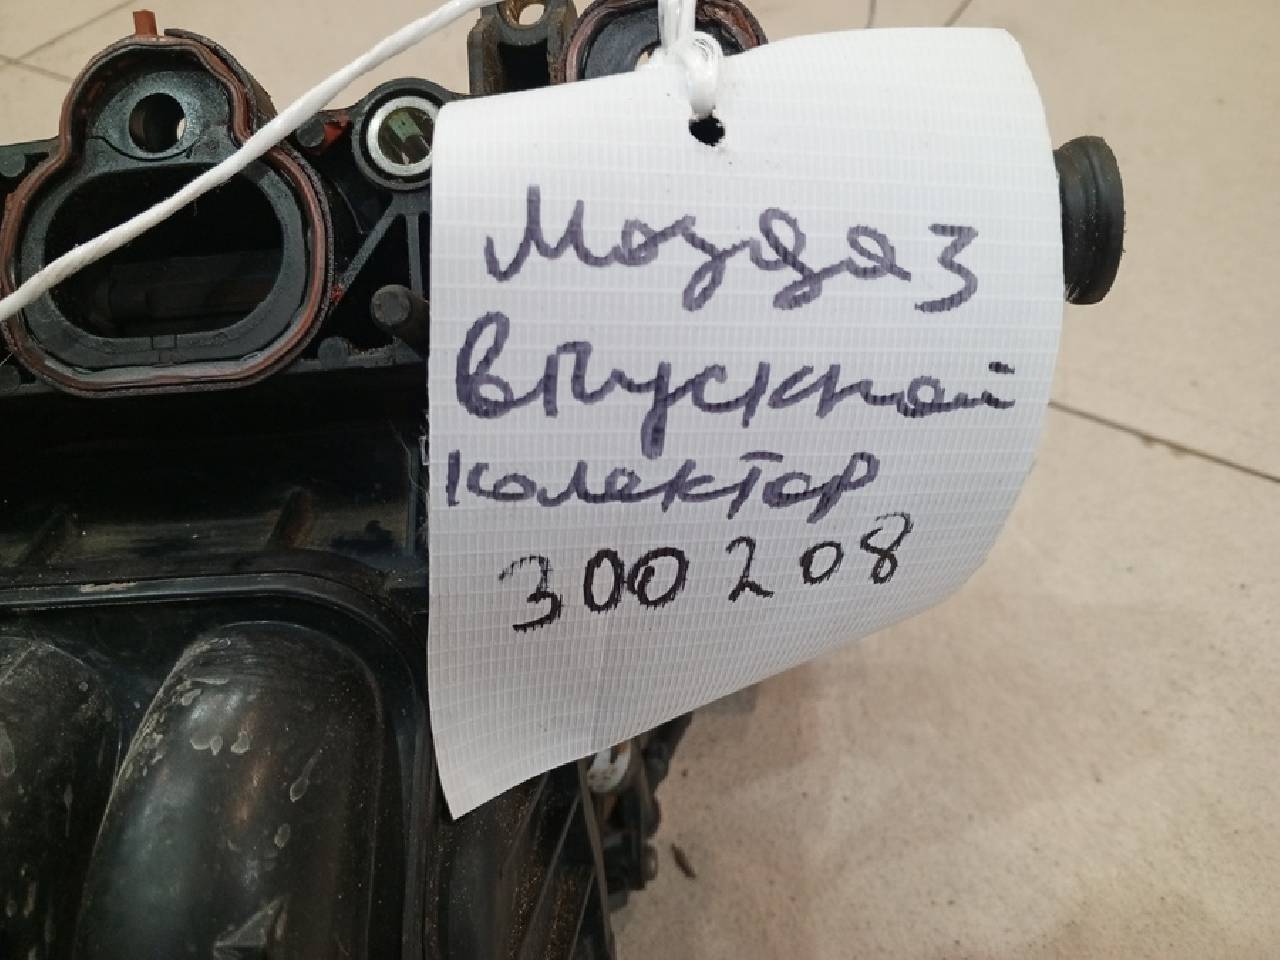 Мозда 3
впускной
колектор
300208